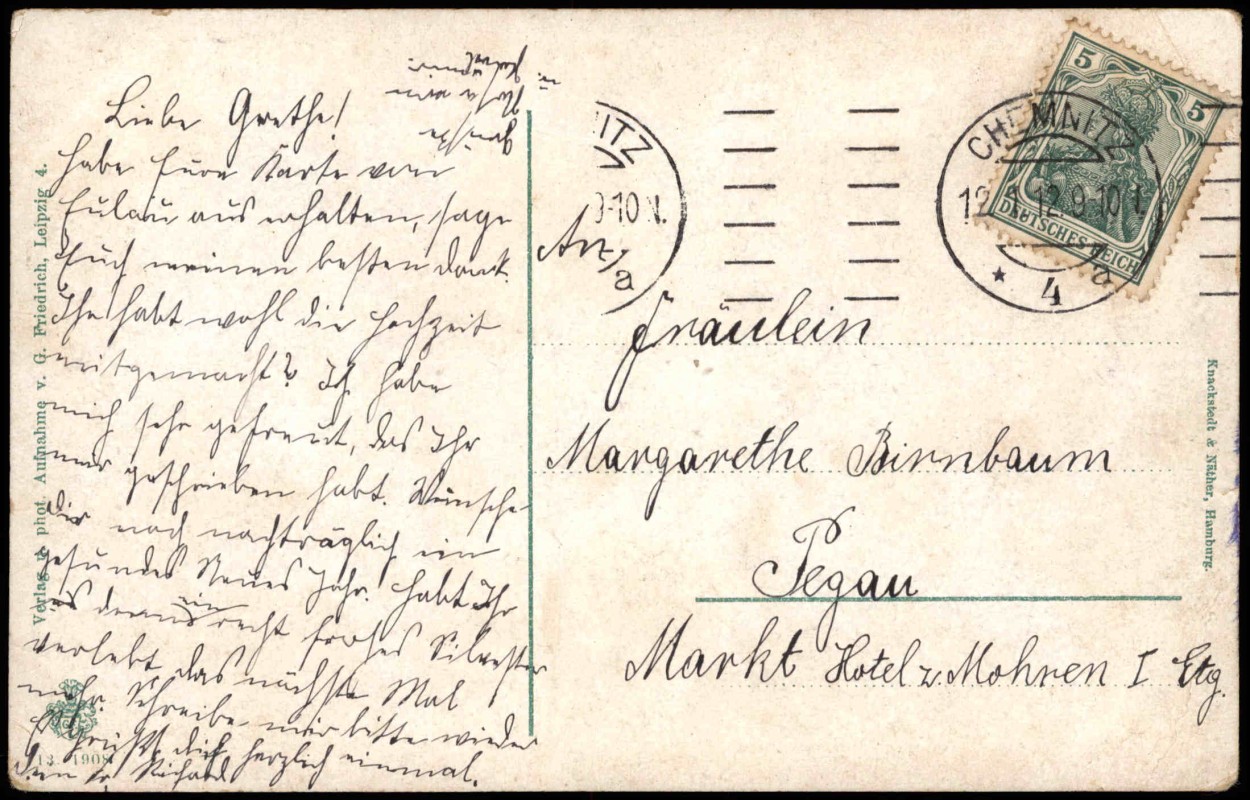 Liebe Grethe!
habe Eure Karte von
Eulau aus erhalten, sage
Euch meinen besten Dank.
Ihr habt wohl die Hochzeit
mitgemacht? Ich habe
mich sehr gefreut, das Ihr
mir geschrieben habt. Wünsche
Dir noch nachträglich ein
gesundes Neues Jahr. Habt Ihr
ein recht frohes Silvester
verlebt, das nächste Mal
mehr. Schreibe mir bitte wieder
Es grüßt dich herzlich einmal.
Richard
An
Fräulein
Margarethe Birnbaum
Pegau
Markt Hotel z. Mohren I Etg.
ITZ
9-10 V.
a
CHEMNITZ
12. 9-10 V.
* 4 a
5 5
DEUTSCHES REICH
Verlag u. phot. Aufnahme v. G. Friedrich, Leipzig 4.
Knackstedt & Näther, Hamburg.
13. 1908